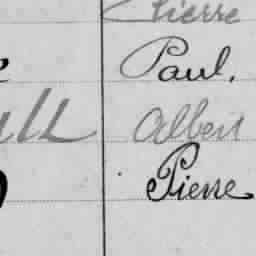 Pierre
Paul.
Albert
Pierre